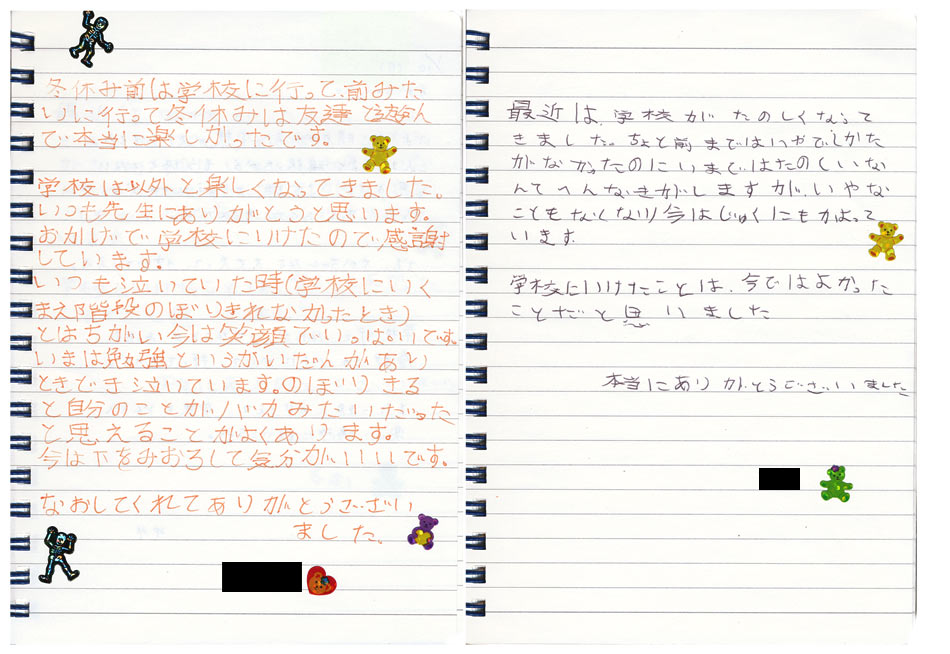 冬休み前は学校に行って、前みた
いに行って冬休みは友達と遊ん
で本当に楽しかったです。
学校は以外と楽しくなってきました。
いつも先生にありがとうと思います。
おかげで学校にいけたので感謝
しています。
いつも泣いていた時(学校にいく
まえ階段のぼりきれなかったとき)
とはちがい今は笑顔でいっぱいです。
いまは勉強というかいだんがあり
ときどき泣いています。のぼりきる
と自分のことがバカみたいだった
と思えることがよくあります。
今は下をみおろして気分がいいいです。
なおしてくれてありがとうござい
ました。
最近は、学校がたのしくなって
きました。ちょと前まではいやでしかた
がなかったのにいまではたのしいな
んてへんなきがしますが、いやな
こともなくなり今はじゅくにもかよって
います。
学校にいけたことは、今ではよかった
ことだと思いました
本当にありがとうございました